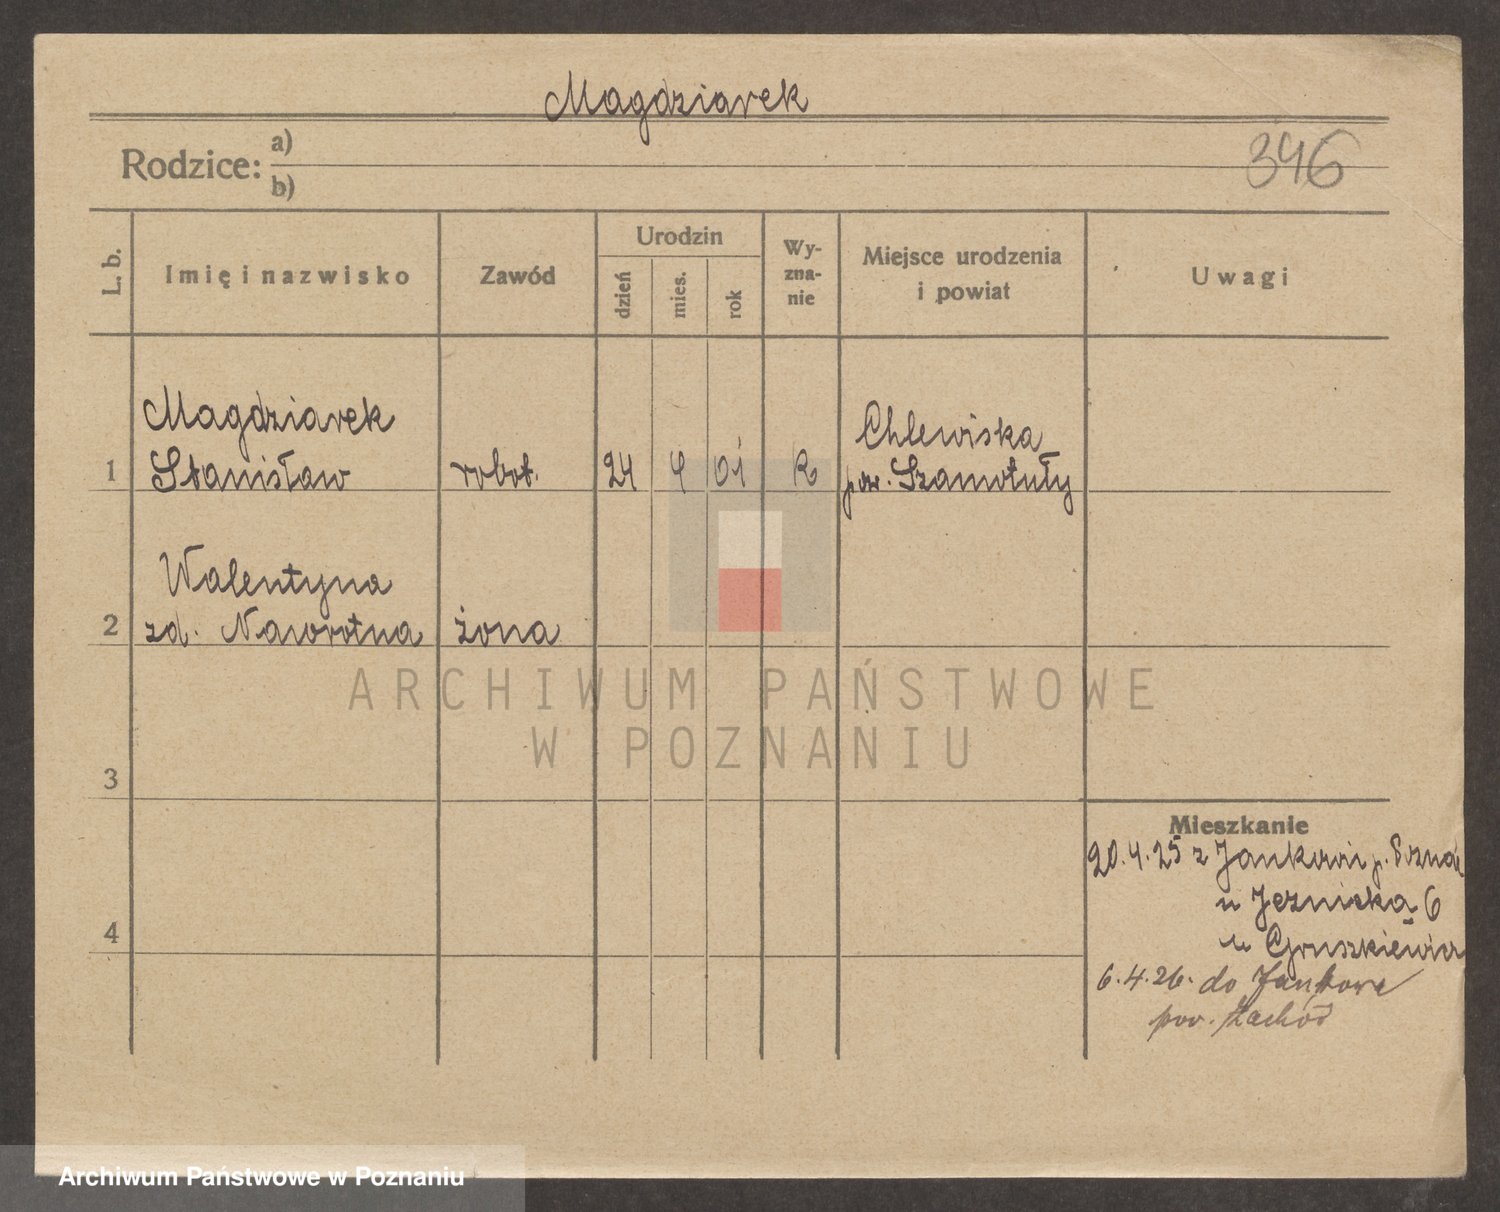 Magdziarek
346
Rodzice: a)
b)
L. b.
Imię i nazwisko
Zawód
Urodzin
dzień
mies.
rok
Wy-
zna-
nie
Miejsce urodzenia
i powiat
Uwagi
Magdziarek
1 Stanisław robot. 24 4 01 R
Chlewiska
pow. Szamotuły
Walentyna
2 zd. Nawrotna żona
ARCHIWUM PAŃSTWOWE
W POZNANIU
3
4
Mieszkanie
20.4.25 z p.
6
u
6.4.26. do Jankowa
pow. Zachód
Archiwum Państwowe w Poznaniu